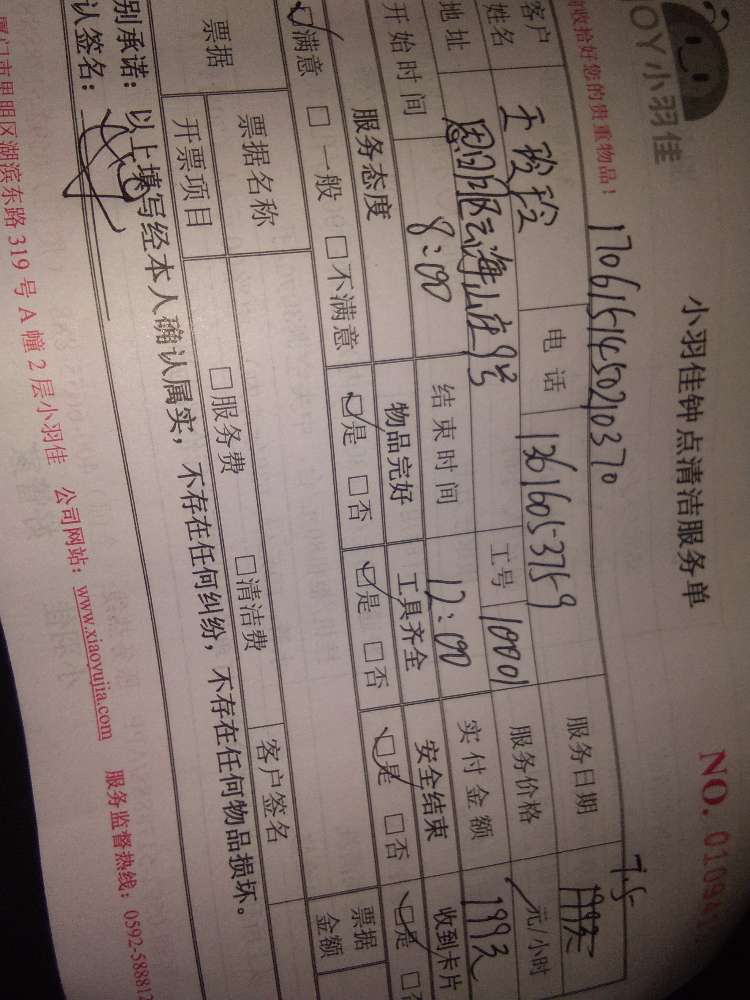 JOY小羽佳
小羽佳钟点清洁服务单
NO. 01094
收拾好您的贵重物品！
1706151450210370
7.5
客户姓名 王玲玲 电话 13616053759 服务日期
地址 工号 10001 服务价格 元/小时
开始时间 8:00 结束时间 12:00 实付金额 199元
服务态度 物品完好 工具齐全 安全结束 收到卡片
☑满意 □一般 □不满意 ☑是 □否 ☑是 □否 ☑是 □否 ☑是 □
票据 票据名称 □服务费 □清洁费 客户签名 票据金额
开票项目
别承诺：以上填写经本人确认属实，不存在任何纠纷，不存在任何物品损坏。
认签名：
厦门市思明区湖滨东路319号A幢2层小羽佳 公司网站：www.xiaoyujia.com 服务监督热线：0592-588812